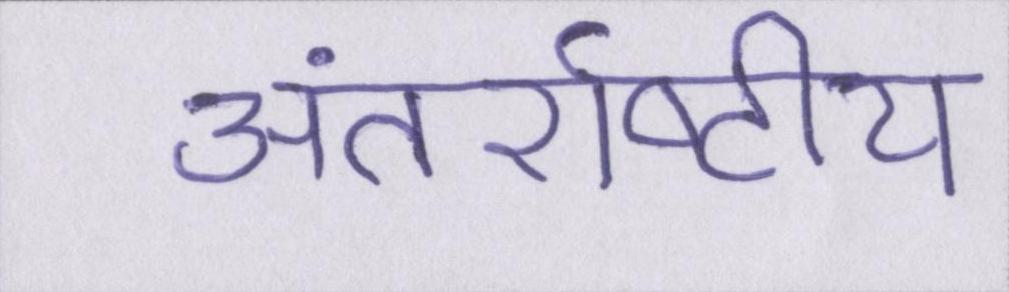 अंतर्राष्टीय